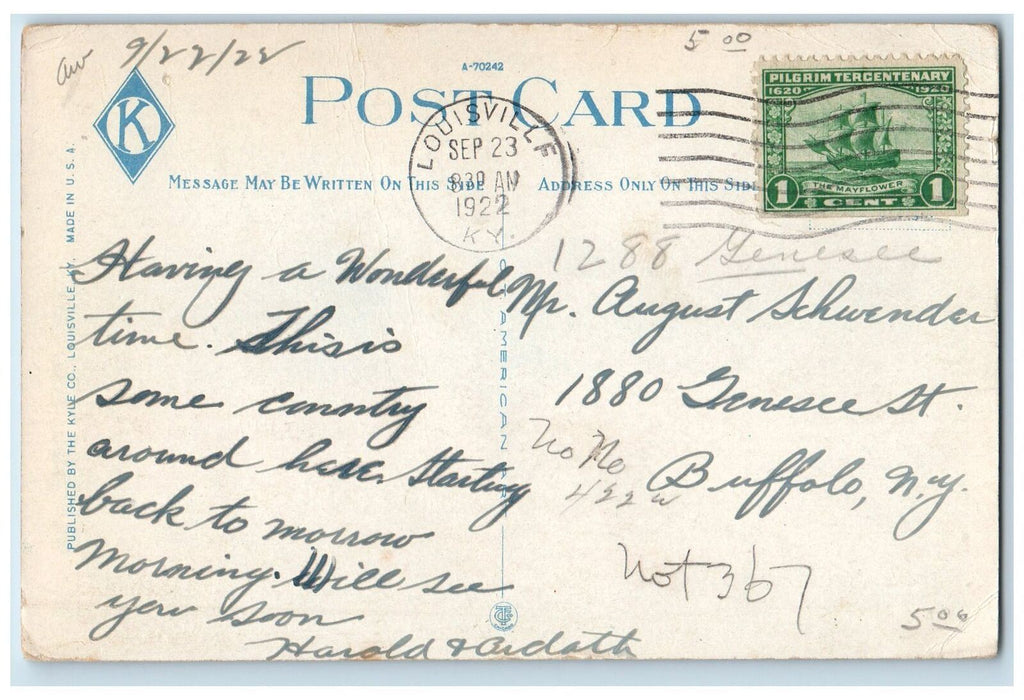 9/22/22
5 00
A-70242
POST CARD
K
LOUISVILLE
SEP 23
830 AM
1922
KY.
PILGRIM TERCENTENARY
1620 1920
THE MAYFLOWER
1 CENT 1
MESSAGE MAY BE WRITTEN ON THIS SIDE
ADDRESS ONLY ON THIS SIDE
PUBLISHED BY THE KYLE CO., LOUISVILLE, KY. MADE IN U.S.A.
AMERICAN
Having a Wonderful
time. This is
some country
around here. Starting
back to morrow
Morning. Will see
you soon
Harold & Ardath
1288 Genesee
Mr. August Schwender
1880 Genesee St.
Buffalo, N.Y.
No No
422
Not 367
5 00